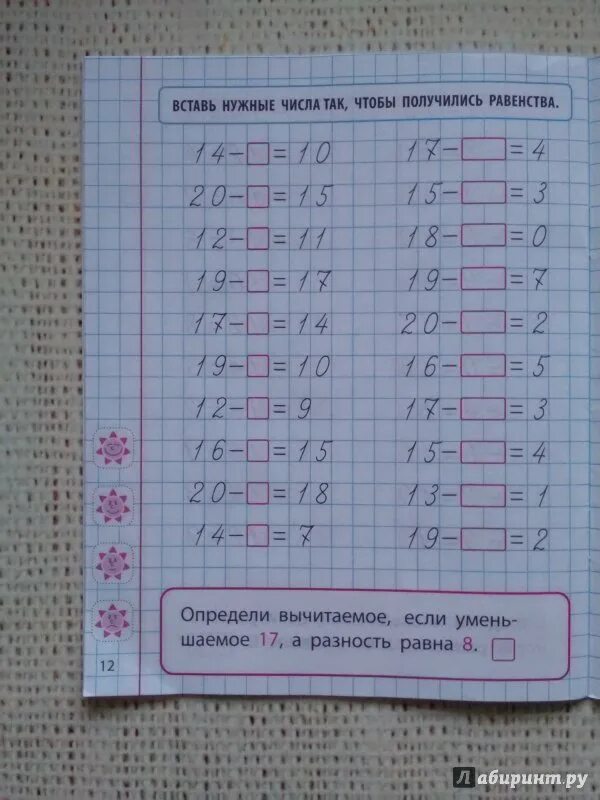 ВСТАВЬ НУЖНЫЕ ЧИСЛА ТАК, ЧТОБЫ ПОЛУЧИЛИСЬ РАВЕНСТВА.
14-□=10
20-□=15
12-□=11
19-□=17
17-□=14
19-□=10
12-□=9
16-□=15
20-□=18
14-□=7
17-□=4
15-□=3
18-□=0
19-□=7
20-□=2
16-□=5
17-□=3
15-□=4
13-□=1
19-□=2
Определи вычитаемое, если умень-
шаемое 17, а разность равна 8. □
12
Лабиринт.ру